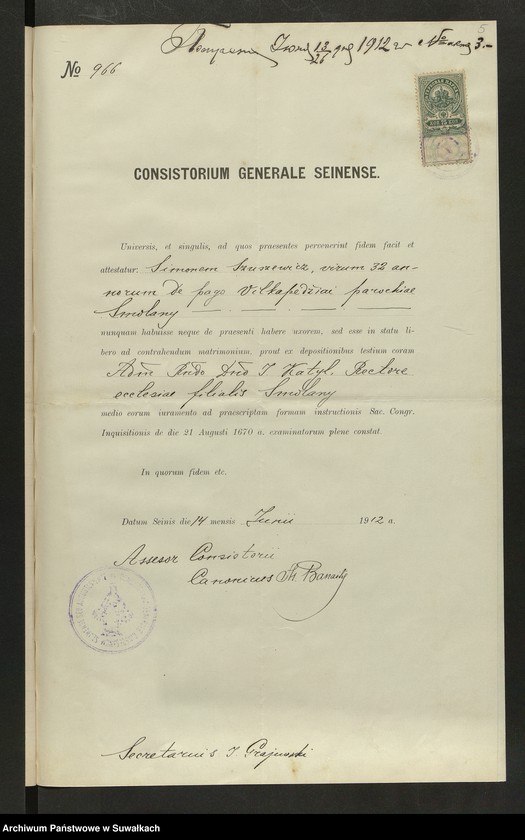 5
Получено Іюня 13/26 дня 1912 г. № 3.-
№ 966
CONSISTORIUM GENERALE SEINENSE.
Universis, et singulis, ad quos praesentes pervenerint fidem facit et
attestatur: Simonem Szuszewicz, virum 32 an-
norum de pago Vilkapedžiai parochiae
Smolany
nunquam habuisse neque de praesenti habere uxorem, sed esse in statu li-
bero ad contrahendum matrimonium, prout ex depositionibus testium coram
Adm Rndo Dno J Katyl, Rectore
ecclesiae filialis Smolany
medio eorum iuramento ad praescriptam formam instructionis Sac. Congr.
Inquisitionis de die 21 Augusti 1670 a. examinatorum plene constat.
In quorum fidem etc.
Datum Seinis die 14 mensis Junii 1912 a.
Assesor Consistorii
Canonicus
Secretarius J Grajewski
Archiwum Państwowe w Suwałkach